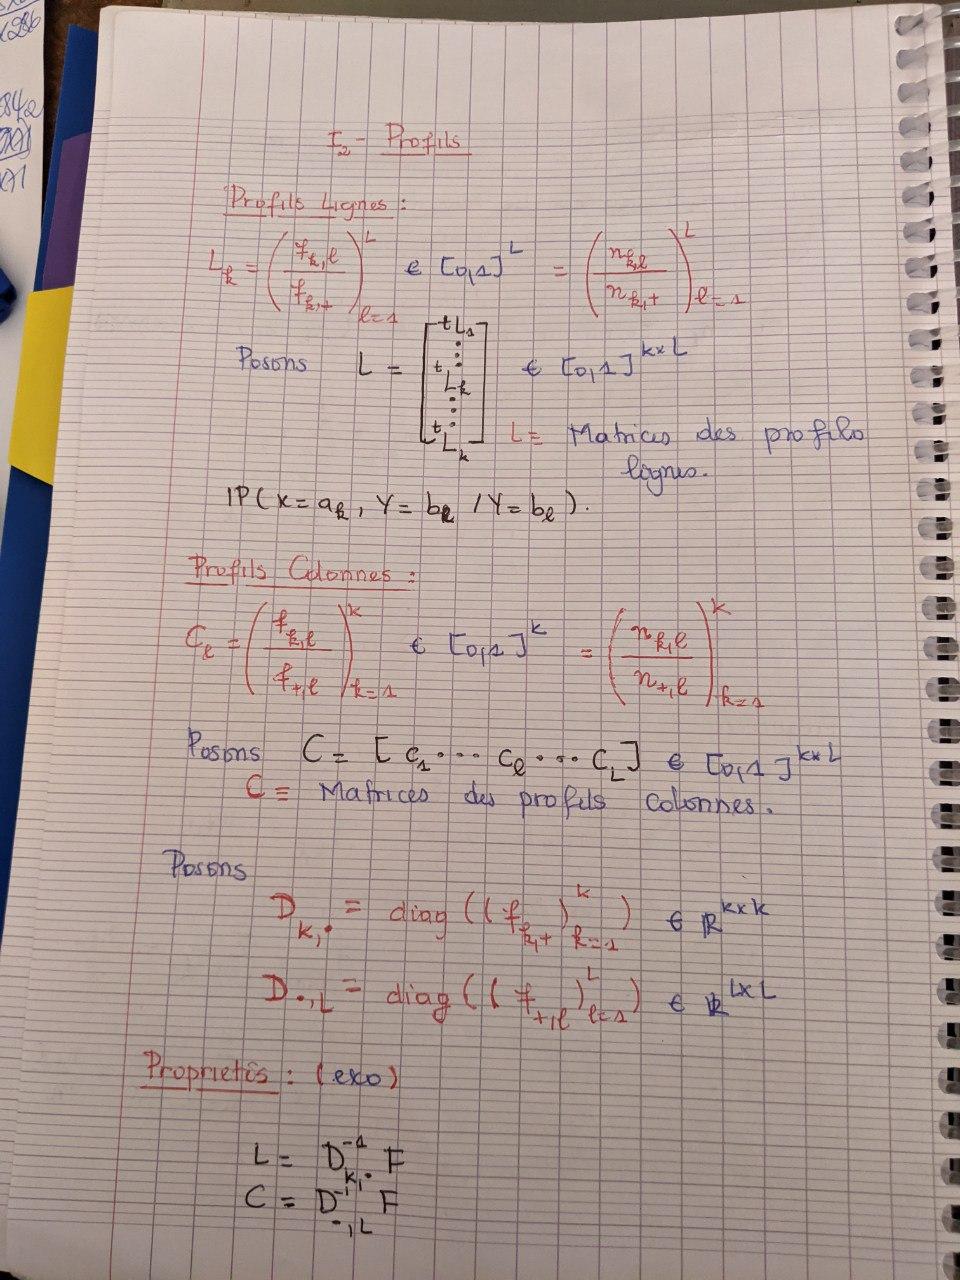 I₂- Profils
Profils Lignes :
L_k = (f_{k,l} / f_{k,+})_{l=1}^L ∈ [0,1]^L = (n_{k,l} / n_{k,+})_{l=1}^L
Posons L = [ᵗL₁ ⋮ ᵗL_k ⋮ ᵗL_k] ∈ [0,1]^{k×L}
L = Matrices des profils
lignes.
IP(X = a_k, Y = b_l / Y = b_l).
Profils Colonnes :
C_l = (f_{k,l} / f_{+,l})_{k=1}^k ∈ [0,1]^k = (n_{k,l} / n_{+,l})_{k=1}^k
Posons C = [c₁ ... c_l ... C_L] ∈ [0,1]^{k×L}
C ≡ Matrices des profils colonnes.
Posons
D_{k,•} = diag((f_{k,+})_{k=1}^k) ∈ ℝ^{k×k}
D_{•,L} = diag((f_{+,l})_{l=1}^L) ∈ ℝ^{L×L}
Proprietés : (exo)
L = D_{k,•}^{-1} F
C = D_{•,L}^{-1} F